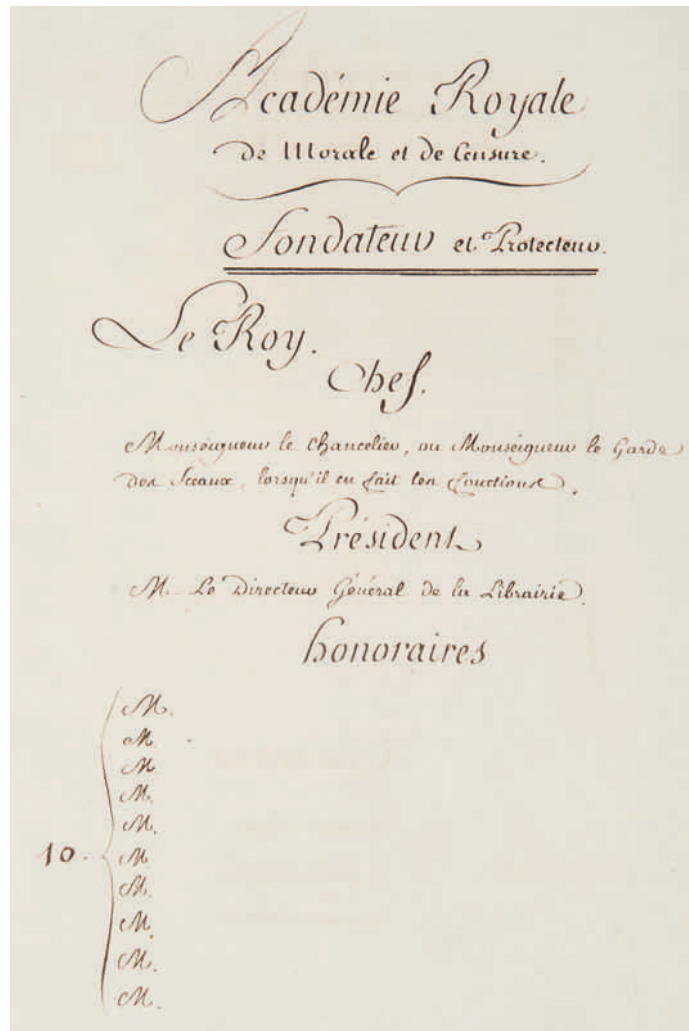 Académie Royale
De Morale et de Censure.
Fondateur et Protecteur.
Le Roy.
Chef.
Monseigneur le Chancelier, ou Monseigneur le Garde
Des Sceaux, lorsqu'il en fait les fonctions.
Président
M. Le Directeur Général de la Librairie.
honoraires
M.
M
M
M.
M.
10. M
M.
M.
M.
M.